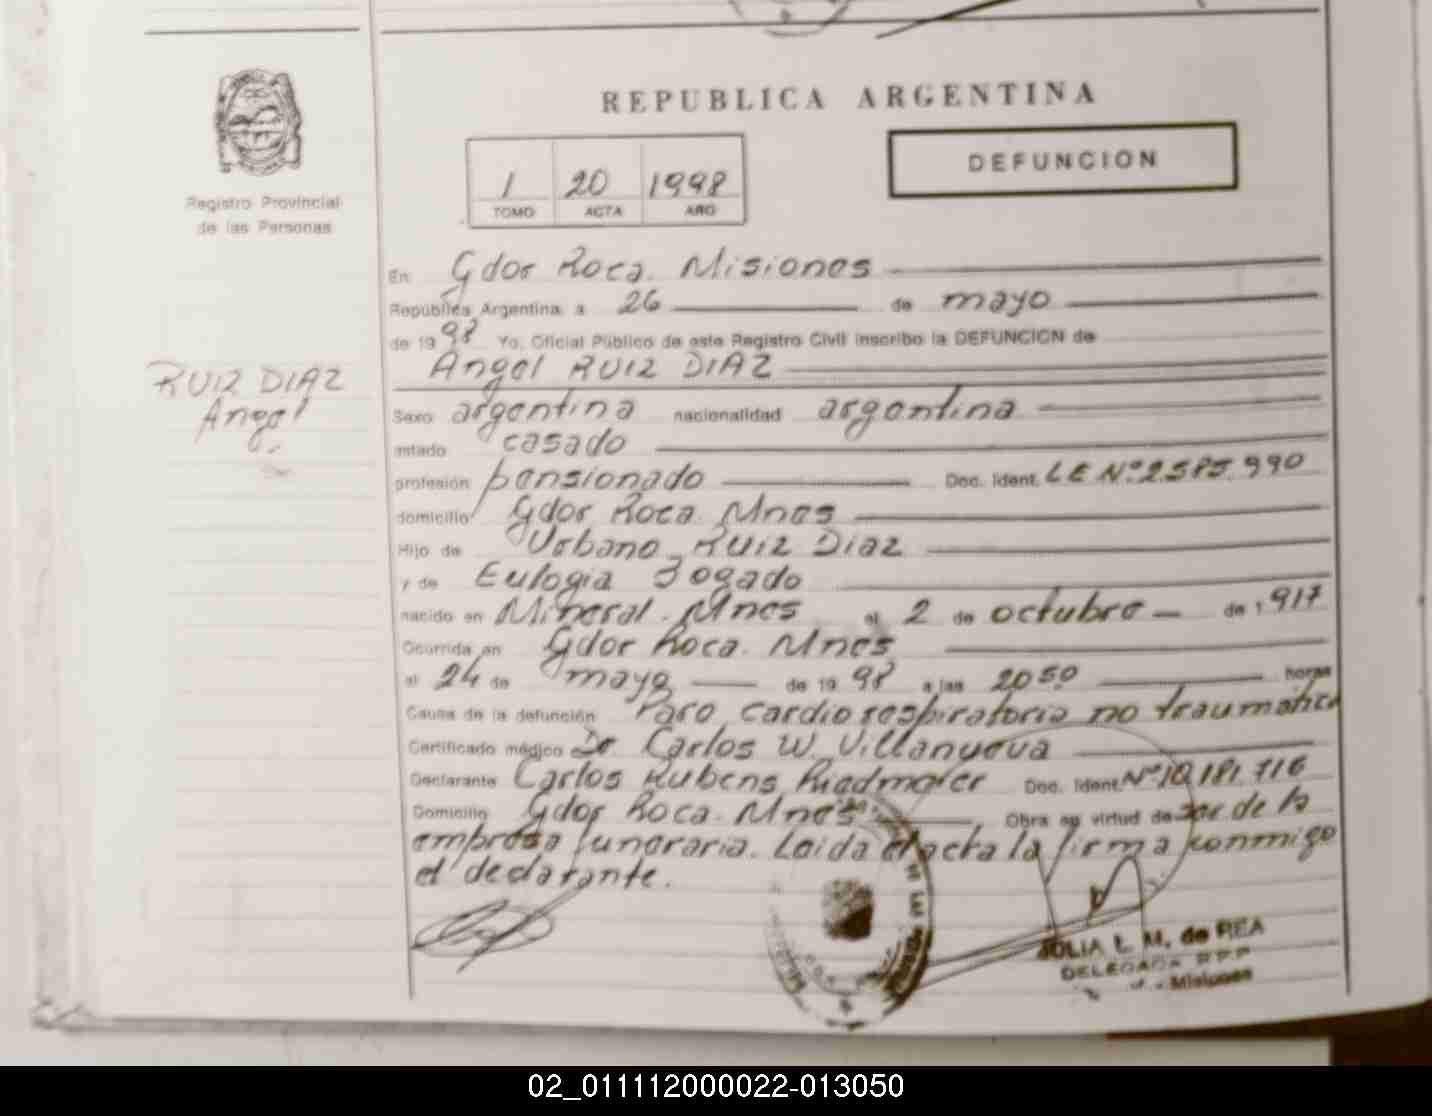 REPUBLICA ARGENTINA
DEFUNCION
1 20 1998
TOMO ACTA AÑO
Registro Provincial
de las Personas
RUIZ DIAZ
Angel
En Gdor Roca. Misiones
República Argentina a 26 de mayo
de 1998 Yo, Oficial Público de este Registro Civil inscribo la DEFUNCION de
Angel RUIZ DIAZ
Sexo argentina nacionalidad argentina
estado casado
profesión pensionado Doc. Ident. LE Nº 2.585.990
domicilio Gdor Roca. Mnes
Hijo de Urbano Ruiz Diaz
y de Eulogia Jogado
nacido en Mineral. Mnes el 2 de octubre de 1917
Ocurrida en Gdor Roca. Mnes
el 24 de mayo de 1998 a las 20 50 horas
Causa de la defunción Paro cardiorespiratorio no traumático
Certificado médico Dr Carlos W. Villanueva
Declarante Carlos Rubens Riedmaier Doc. Ident. Nº 10.181.716
Domicilio Gdor Roca. Mnes Obra en virtud de ser de la
empresa funeraria. Leida el acta la firma conmigo
el declarante.
JULIA L. M. de REA
DELEGADA R.P.P
Misiones
02_011112000022-013050